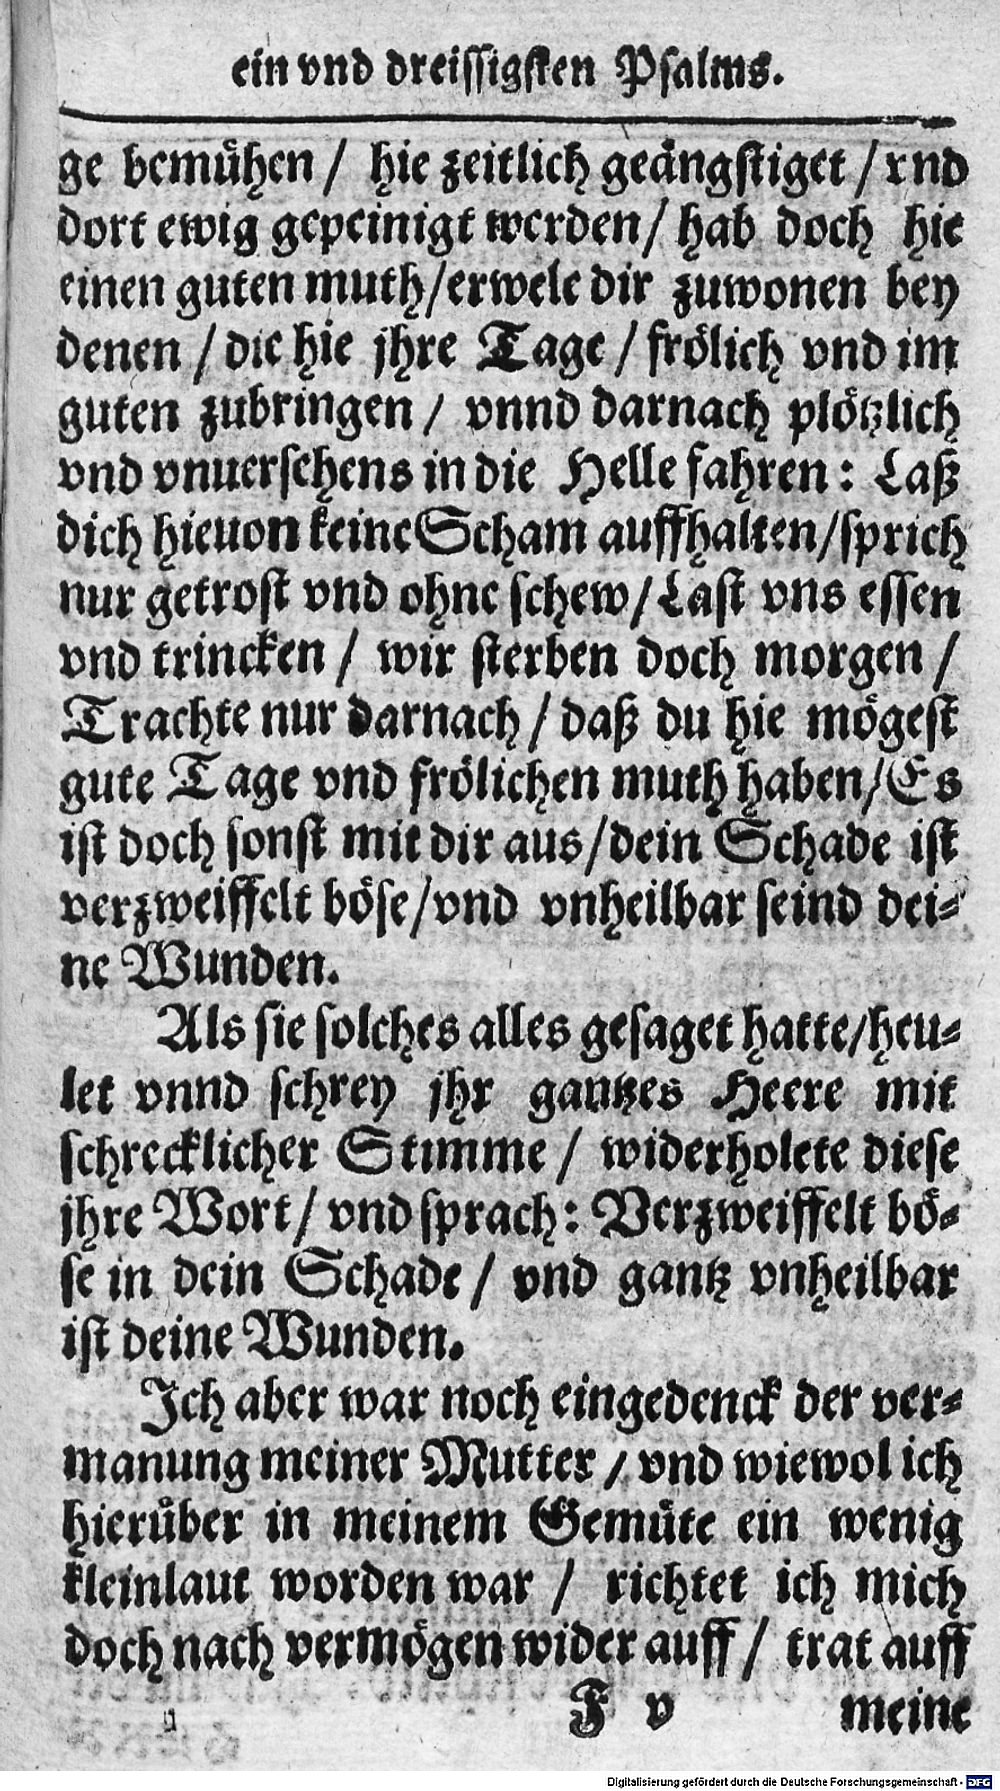 ein vnd dreissigsten Psalms.
ge bemühen / hie zeitlich geängstiget / vnd
dort ewig gepeinigt werden / hab doch hie
einen guten muth / erwele dir zuwonen bey
denen / die hie jhre Tage / frölich vnd im
guten zubringen / vnnd darnach plötzlich
vnd vnuersehens in die Helle fahren: Laß
dich hieuon keine Scham auffhalten / sprich
nur getrost vnd ohne schew / Last vns essen
vnd trincken / wir sterben doch morgen /
Trachte nur darnach / daß du hie mögest
gute Tage vnd frölichen muth haben / Es
ist doch sonst mit dir aus / dein Schade ist
verzweiffelt böse / vnd vnheilbar seind dei-
ne Wunden.
Als sie solches alles gesaget hatte / heu-
let vnnd schrey jhr gantzes Heere mit
schrecklicher Stimme / widerholete diese
jhre Wort / vnd sprach: Verzweiffelt bö-
se in dein Schade / vnd gantz vnheilbar
ist deine Wunden.
Ich aber war noch eingedenck der ver-
manung meiner Mutter / vnd wiewol ich
hierüber in meinem Gemüte ein wenig
kleinlaut worden war / richtet ich mich
doch nach vermögen wider auff / trat auff
F v meine
Digitalisierung gefördert durch die Deutsche Forschungsgemeinschaft - DFG